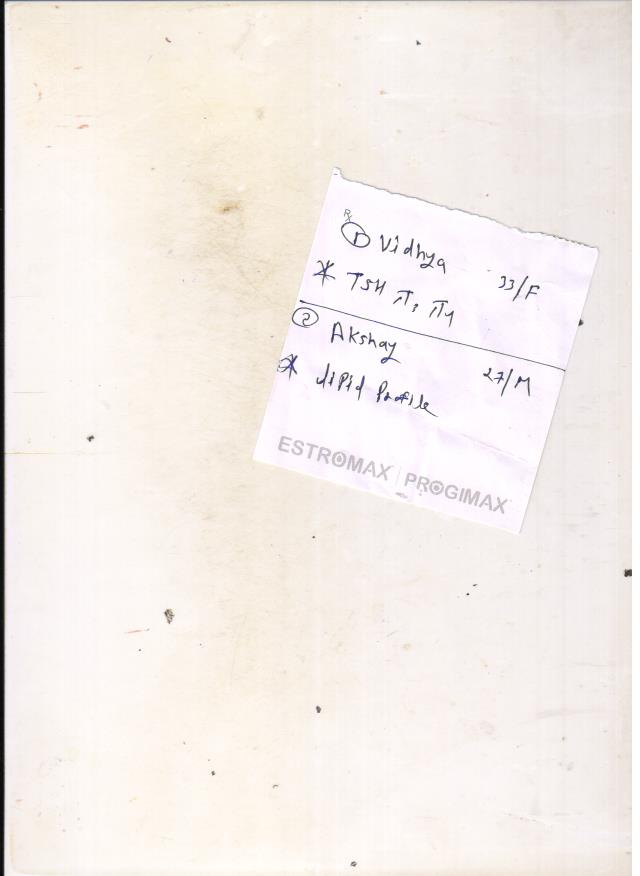 Rx
① Vidhya 33/F
* TSH T3, T4
② Akshay 27/M
* lipid Profile
ESTROMAX | PROGIMAX